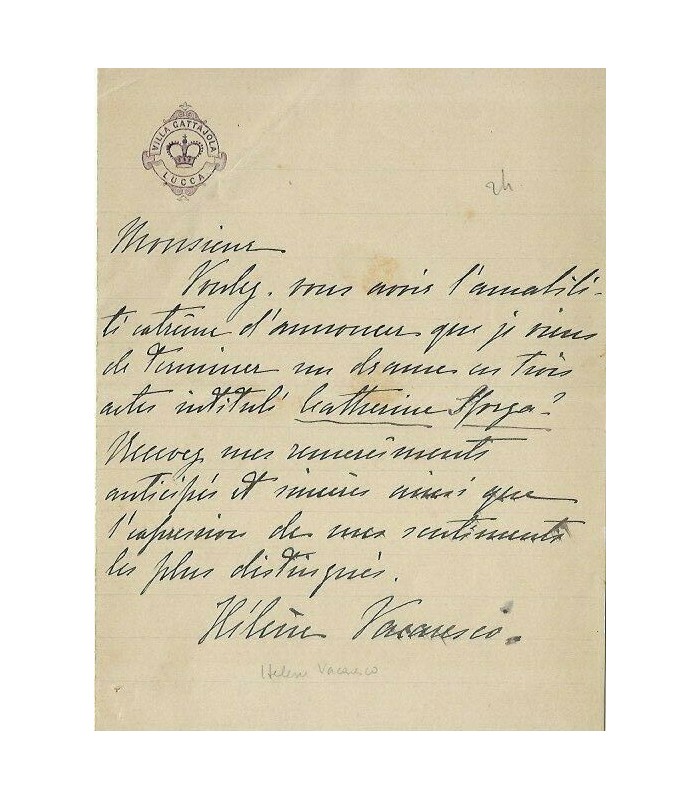 VILLA GATTAJOLA
LUCCA
2h
Monsieur
Voulez-vous avoir l'amabili-
té extrême d'annoncer que je viens
de terminer un drame en trois
actes intitulé Catherine Sforza?
Recevez mes remerciments
anticipés et sincères ainsi que
l'expression de mes sentiments
les plus distingués.
Hélène Vacaresco.
Helene Vacaresco